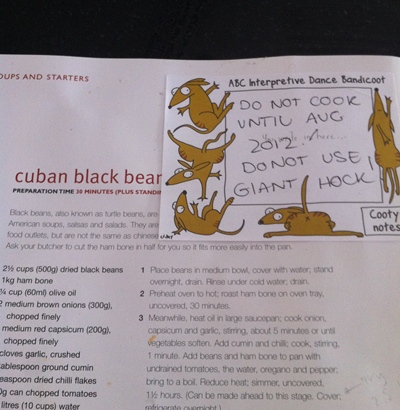 OUPS AND STARTERS
ABC Interpretive Dance Bandicoot
DO NOT COOK
UNTIL AUG
2012.
DO NOT USE
GIANT HOCK
Cooty
notes
cuban black bean
PREPARATION TIME 30 MINUTES (PLUS STANDIN
Black beans, also known as turtle beans, are
American soups, salsas and salads. They are
food outlets, but are not the same as chinese
Ask your butcher to cut the ham bone in half for you so it fits more easily into the pan.
2½ cups (500g) dried black beans
1kg ham bone
¼ cup (60ml) olive oil
2 medium brown onions (300g),
chopped finely
medium red capsicum (200g),
chopped finely
cloves garlic, crushed
ablespoon ground cumin
easpoon dried chilli flakes
0g can chopped tomatoes
litres (10 cups) water
1 Place beans in medium bowl, cover with water; stand
overnight, drain. Rinse under cold water; drain.
2 Preheat oven to hot; roast ham bone on oven tray,
uncovered, 30 minutes.
3 Meanwhile, heat oil in large saucepan; cook onion,
capsicum and garlic, stirring, about 5 minutes or until
vegetables soften. Add cumin and chilli; cook, stirring,
1 minute. Add beans and ham bone to pan with
undrained tomatoes, the water, oregano and pepper;
bring to a boil. Reduce heat; simmer, uncovered,
1½ hours. (Can be made ahead to this stage. Cover;
refrigerate overnight.)